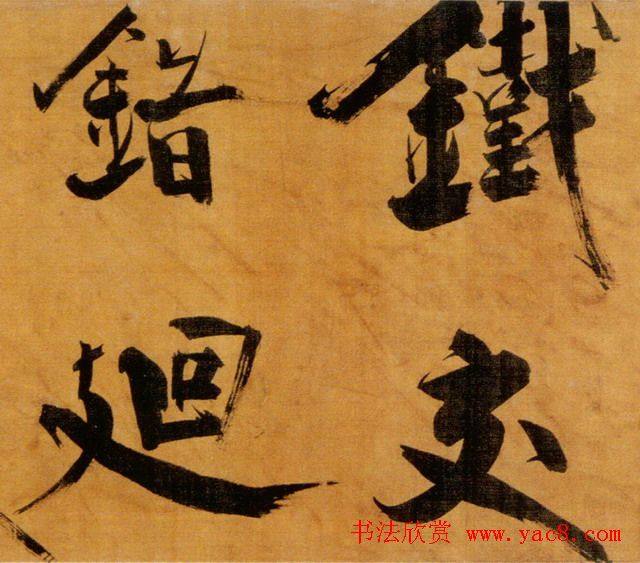 鐵交
錯廻
书法欣赏 www.yac8.com